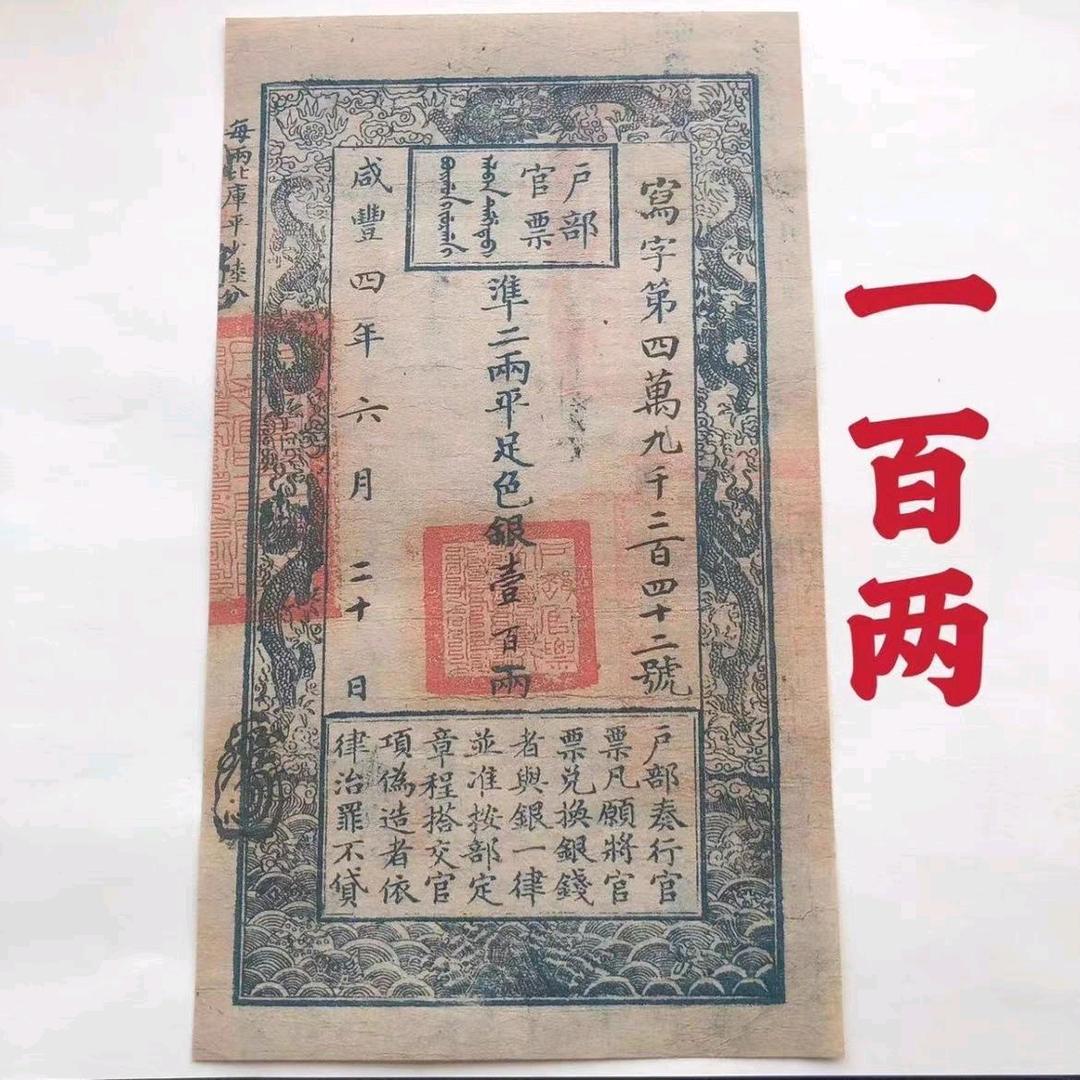 户部
官票
寫字第四萬九千二百四十二號
準二兩平足色銀壹百兩
咸豐四年六月二十日
每兩比庫平少陸分
户部奏行官
票凡願將官
票兑換銀錢
者與銀一律
並准按部定
章程搭交官
項偽造者依
律治罪不貸
一百两